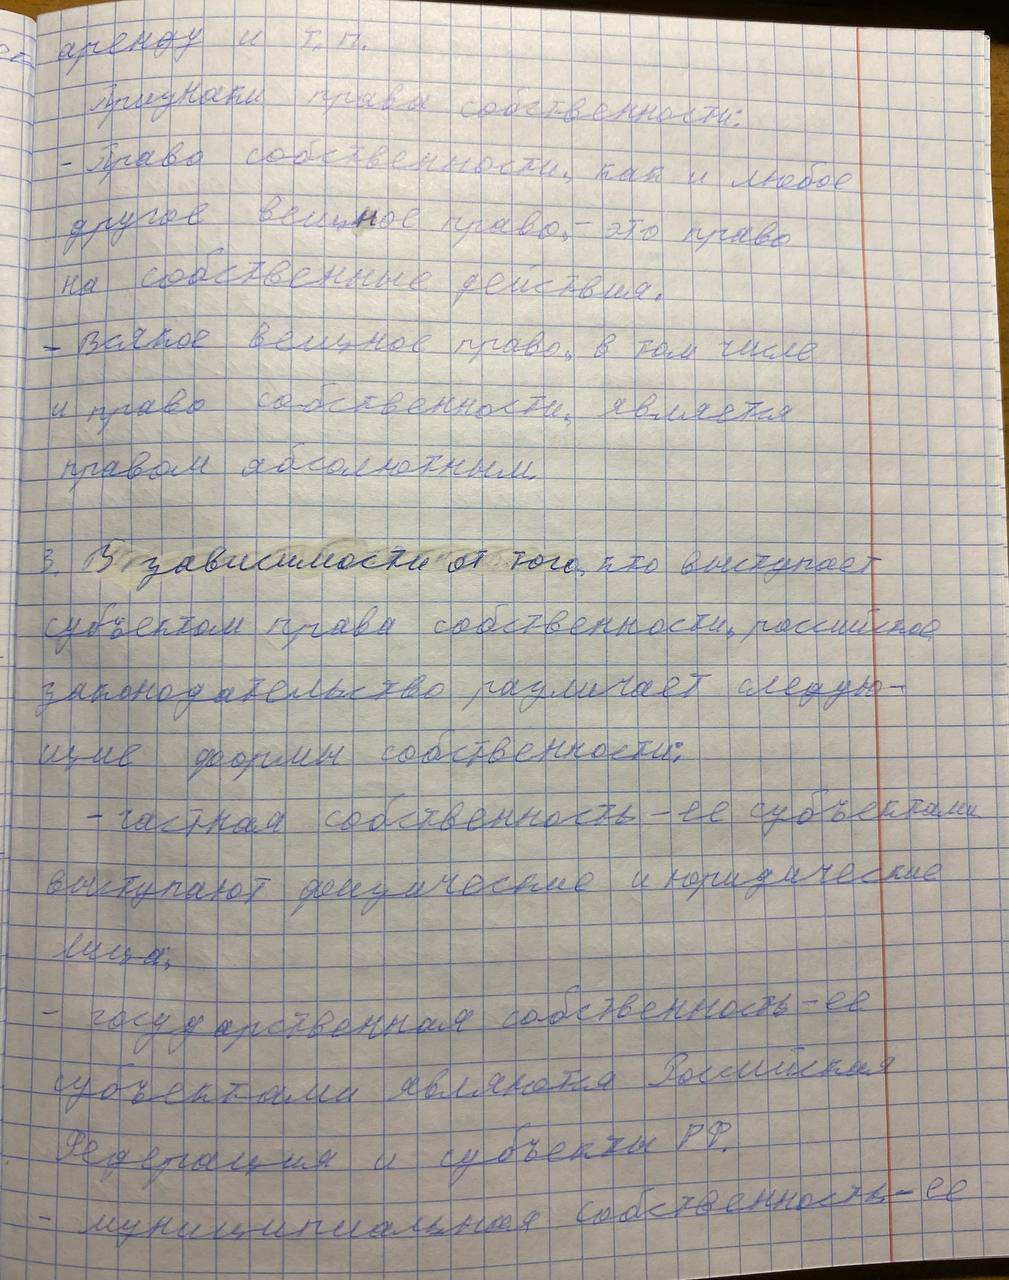 аренду и т.п.
Признаки права собственности:
- Право собственности, как и любое
другое вещное право, - это право
на собственные действия.
- Всякое вещное право, в том числе
и право собственности, является
правом абсолютным.
3. В зависимости от того, кто выступает
субъектом права собственности, российское
законодательство различает следую-
щие формы собственности:
- частная собственность - ее субъектами
выступают физические и юридические
лица,
- государственная собственность - ее
субъектами являются Российская
Федерация и субъекты РФ.
- муниципиальная собственность - ее